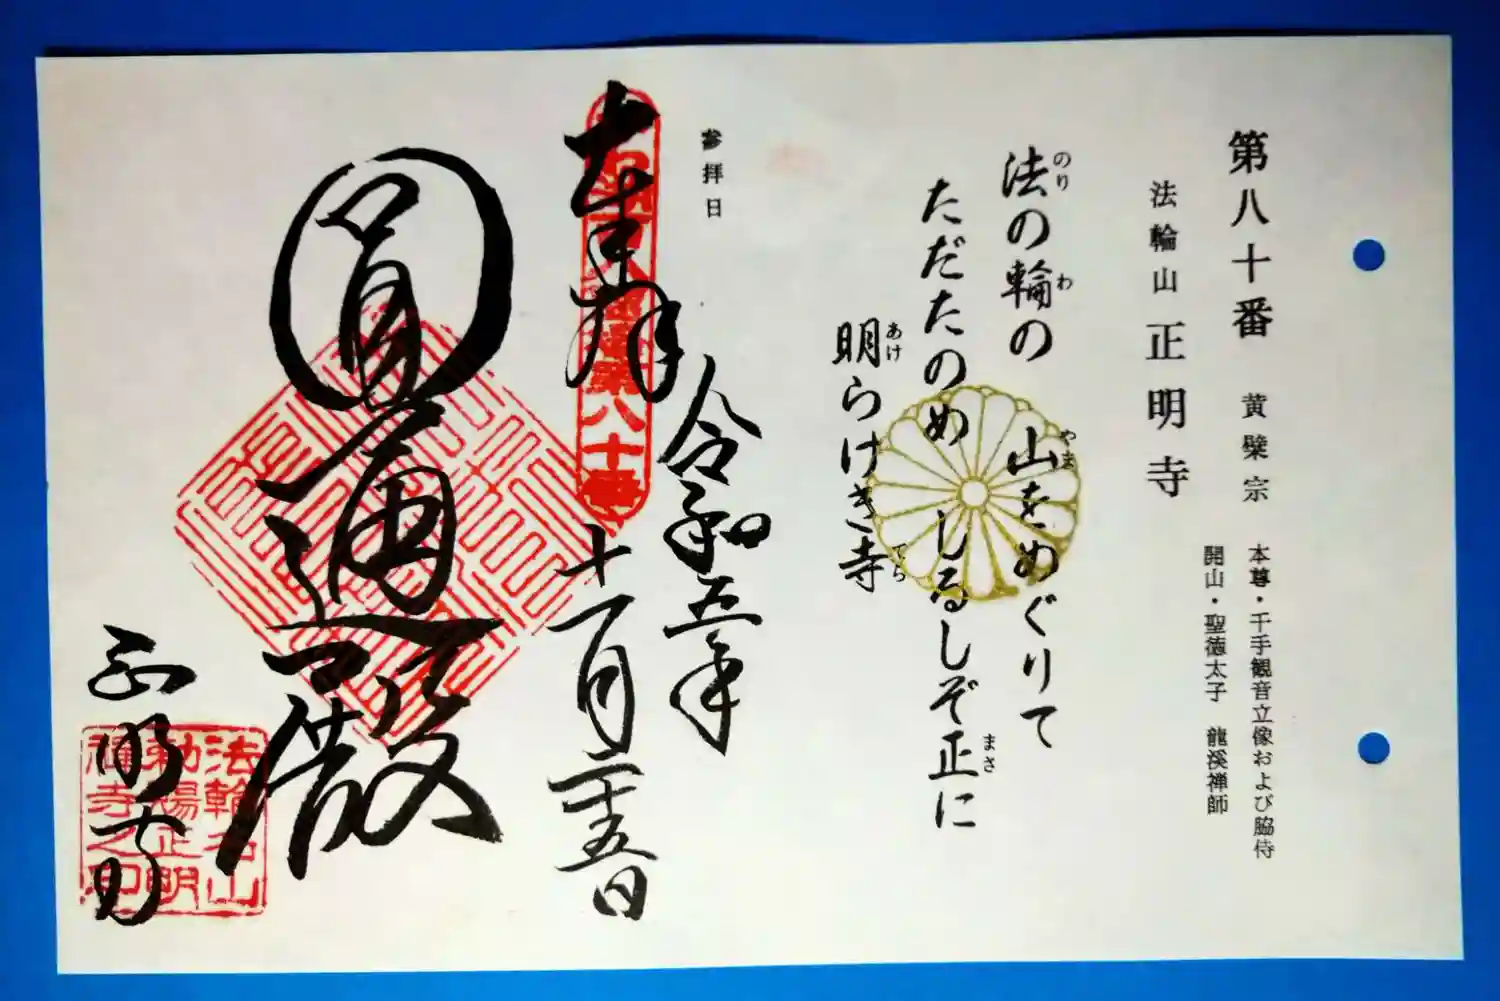 第八十番 黄檗宗 本尊・千手観音立像および脇侍
開山・聖徳太子 龍溪禅師
法輪山 正明寺
法の輪の 山をめぐりて
のり わ やま
ただたのめ しるしぞ正に
まさ
明らけき寺
あけ てら
参拝日
奉拝
令和五年
十一月二十五日
第八十番
圓通殿
正明寺
法輪名山
勅賜正明
禅寺之印